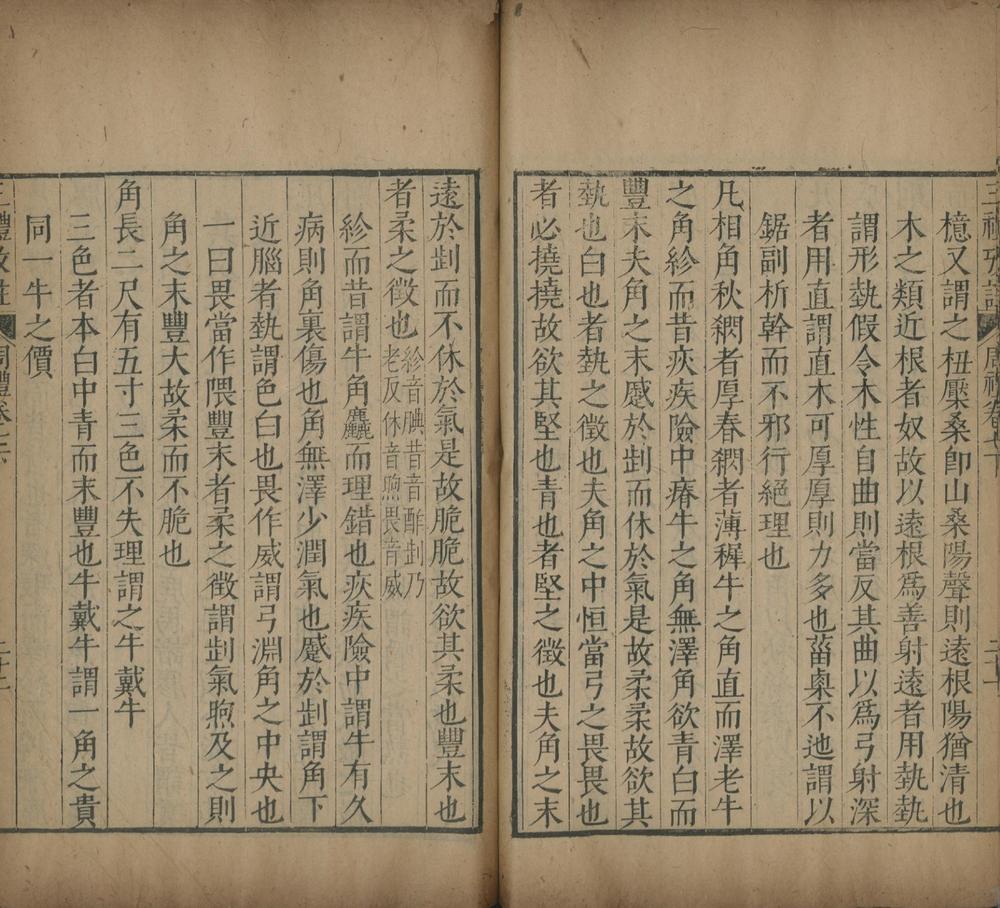 檍又謂之杻檿桑卽山桑陽聲則遠根陽猶清也
木之類近根者奴故以遠根爲善射遠者用埶埶
謂形埶假令木性自曲則當反其曲以爲弓射深
者用直謂直木可厚厚則力多也菑㮚不迆謂以
鋸副析幹而不邪行絕理也
凡相角秋閷者厚春閷者薄穉牛之角直而澤老牛
之角紾而昔疢疾險中瘠牛之角無澤角欲青白而
豐末夫角之末蹙於㓡而休於氣是故柔柔故欲其
埶也白也者埶之徵也夫角之中恒當弓之畏畏也
者必撓撓故欲其堅也青也者堅之徵也夫角之末
遠於㓡而不休於氣是故脆脆故欲其柔也豐末也
者柔之徵也紾音腆昔音酢㓡乃
老反休音煦畏音威
紾而昔謂牛角麤而理錯也疢疾險中謂牛有久
病則角裏傷也角無澤少潤氣也蹙於㓡謂角下
近腦者埶謂色白也畏作威謂弓淵角之中央也
一曰畏當作隈豐末者柔之徵謂㓡氣煦及之則
角之末豐大故柔而不脆也
角長二尺有五寸三色不失理謂之牛戴牛
三色者本白中青而末豐也牛戴牛謂一角之貴
同一牛之價